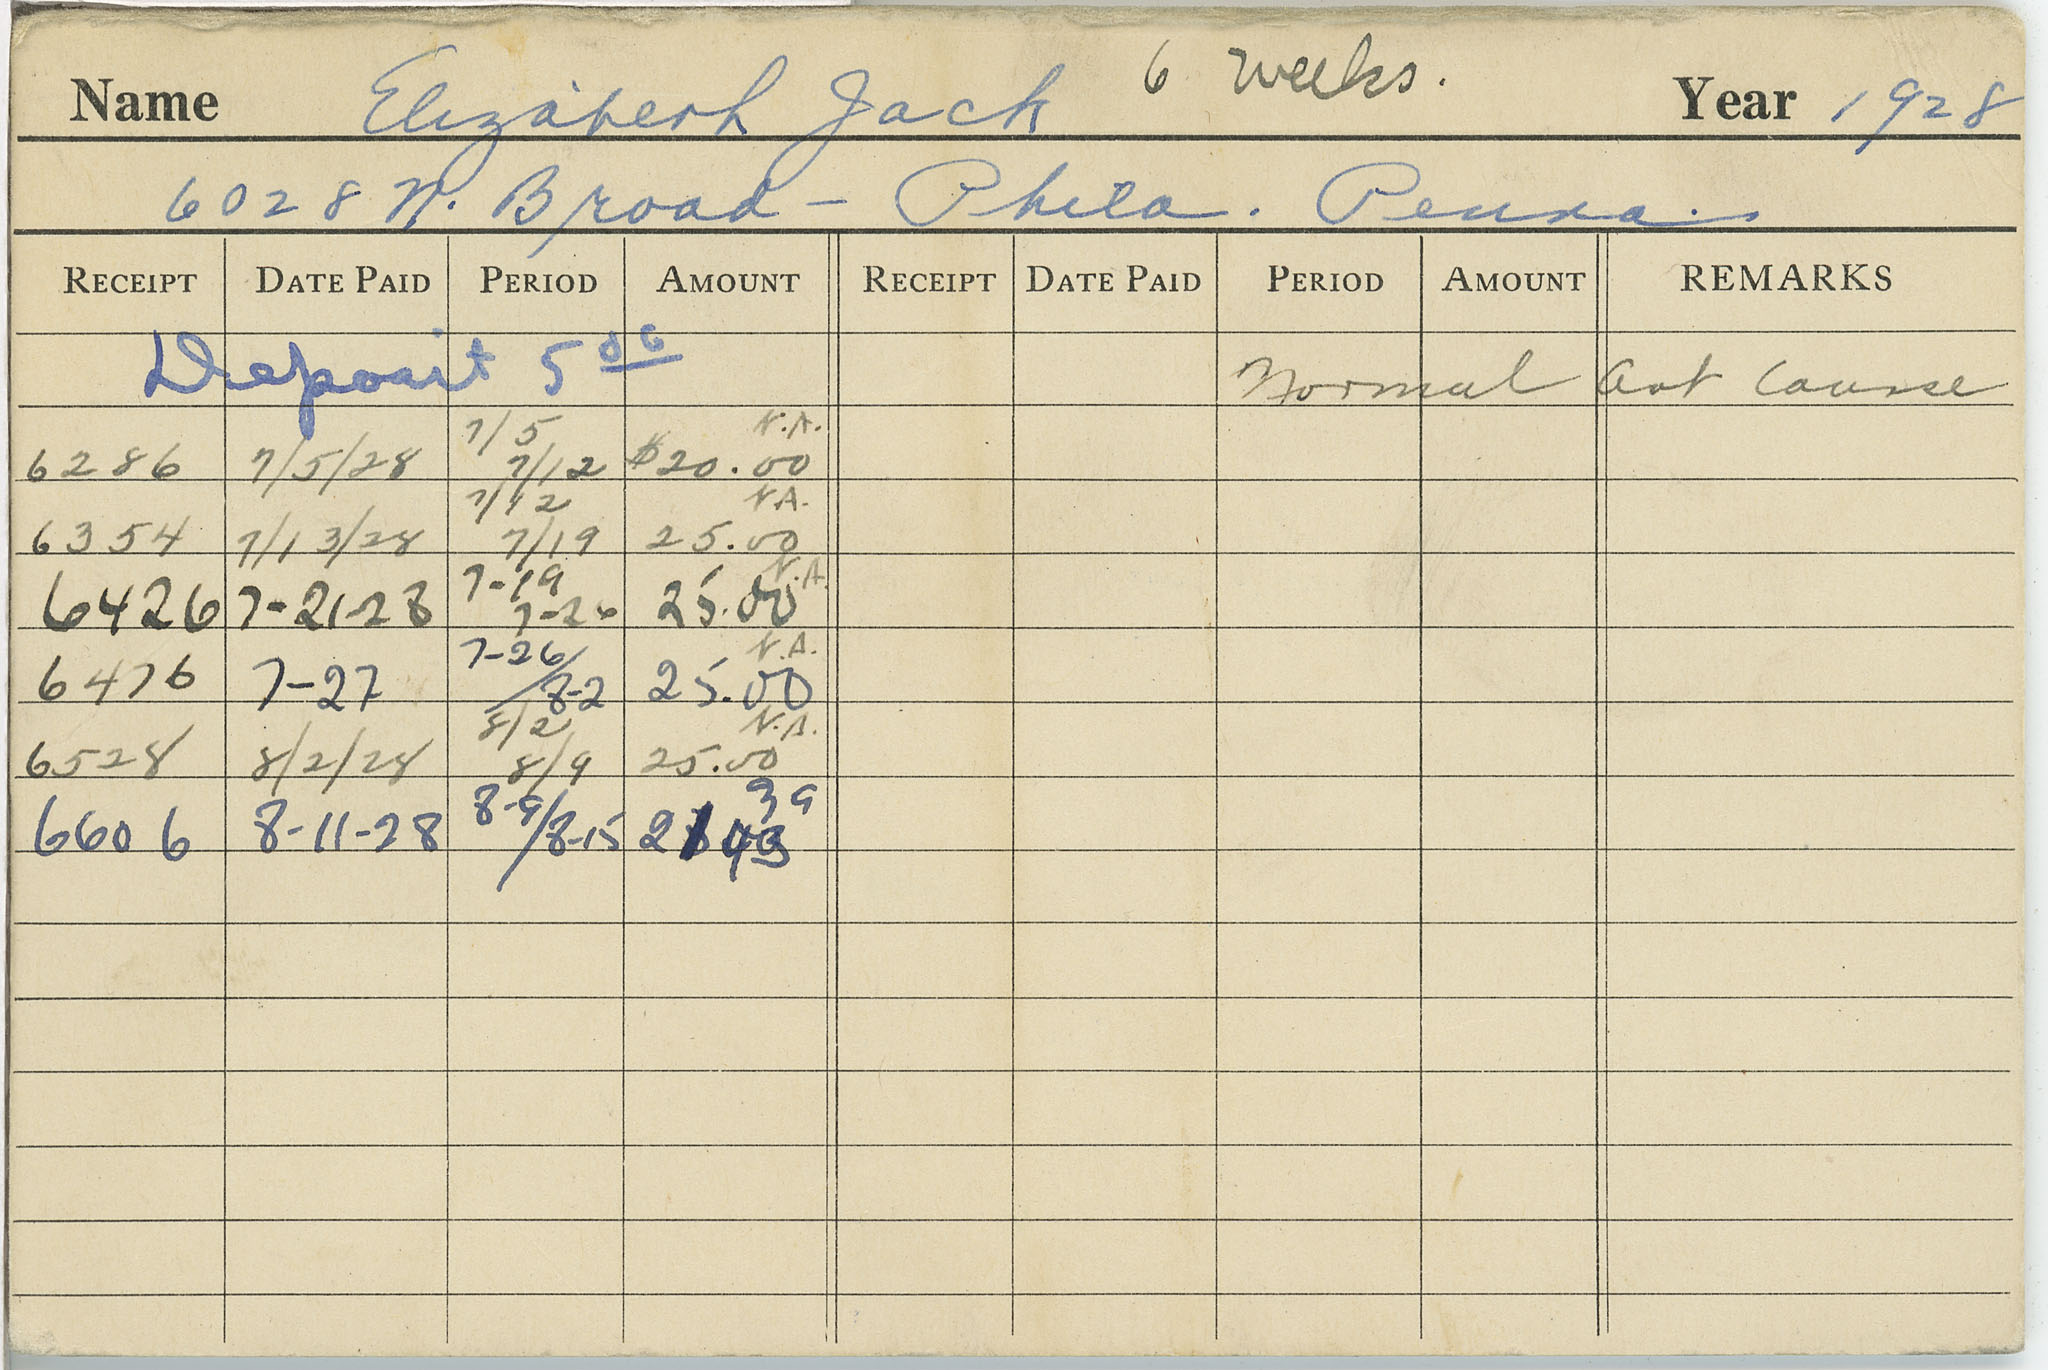 Name Elizabeth Jack 6 weeks. Year 1928
6028 N. Broad - Phila. Penna.
RECEIPT DATE PAID PERIOD AMOUNT RECEIPT DATE PAID PERIOD AMOUNT REMARKS
Deposit 5 00 Normal Art Course
7/5 N.A.
6286 7/5/28 7/12 $20.00
7/12 N.A.
6354 7/13/28 7/19 25.00
7-19 N.A.
6426 7-21-28 7-26 25.00
7-26/ N.A.
6476 7-27 8-2 25.00
8/2 N.A.
6528 8/2/28 8/9 25.00
6606 8-11-28 8-9/8-15